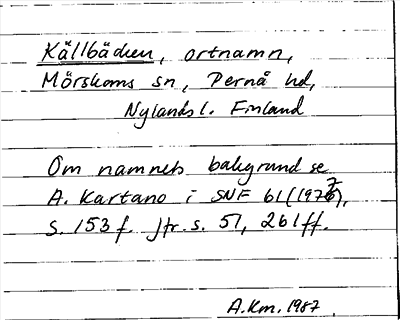 Källbäcken, ortnamn,
Mörskoms sn, Pernå hd,
Nylands l. Finland
Om namnets bakgrund se
A. Kartano i SNF 61 (1977),
s. 153 f. Jfr. s. 51, 261 ff.
A.Km. 1987